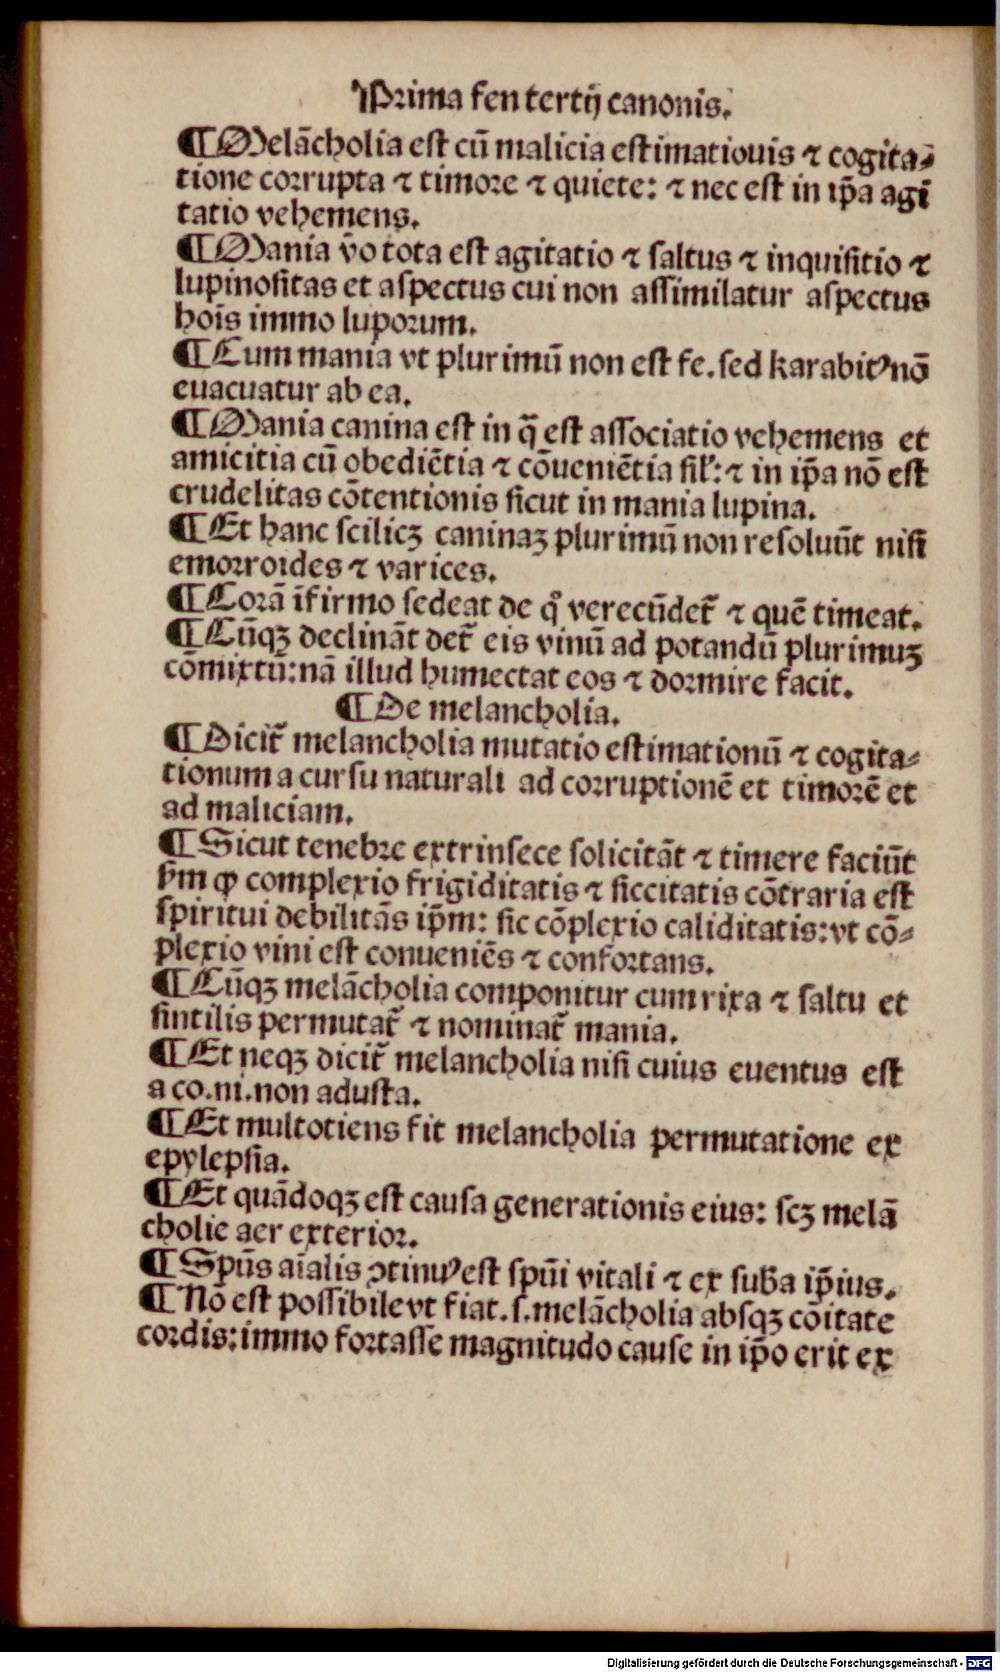 Prima fen tertij canonis.
¶ Melācholia est cū malicia estimatiouis ⁊ cogita⸗
tione corrupta ⁊ timore ⁊ quiete: ⁊ nec est in ip̄a agi
tatio vehemens.
¶ Mania v̄o tota est agitatio ⁊ saltus ⁊ inquisitio ⁊
lupinositas et aspectus cui non assimilatur aspectus
hoīs immo luporum.
¶ Cum mania vt plurimū non est fe. sed karabitꝰ nō
euacuatur ab ea.
¶ Mania canina est in q̄ est associatio vehemens et
amicitia cū obediētia ⁊ cōueniētia sil': ⁊ in ip̄a nō est
crudelitas cōtentionis sicut in mania lupina.
¶ Et hanc scilicꝫ caninaꝫ plurimū non resoluūt nisi
emorroides ⁊ varices.
¶ Corā īfirmo sedeat de qͦ verecūdet᷑ ⁊ quē timeat.
¶ Cūqꝫ declināt det᷑ eis vinū ad potandū plurimuꝫ
cōmixtū: nā illud humectat eos ⁊ dormire facit.
¶ De melancholia.
¶ Dicit᷑ melancholia mutatio estimationū ⁊ cogita⸗
tionum a cursu naturali ad corruptionē et timorē et
ad maliciam.
¶ Sicut tenebre extrinsece solicitāt ⁊ timere faciūt
ẜm ꝙ complexio frigiditatis ⁊ siccitatis cōtraria est
spiritui debilitās ip̄m: sic cōplexio caliditatis: vt cō⸗
plexio vini est conueniēs ⁊ confortans.
¶ Cūqꝫ melācholia componitur cum rixa ⁊ saltu et
sintilis permutat᷑ ⁊ nominat᷑ mania.
¶ Et neqꝫ dicit᷑ melancholia nisi cuius euentus est
a co. ni. non adusta.
¶ Et multotiens fit melancholia permutatione ex
epylepsia.
¶ Et quādoqꝫ est causa generationis eius: scꝫ melā
cholie aer exterior.
¶ Spūs aīalis ↄtinuꝰ est spūi vitali ⁊ ex suba ip̄ius.
¶ Nō est possibile vt fiat. s. melācholia absqꝫ cōitate
cordis: immo fortasse magnitudo cause in ip̄o erit ex
Digitalisierung gefördert durch die Deutsche Forschungsgemeinschaft - DFG